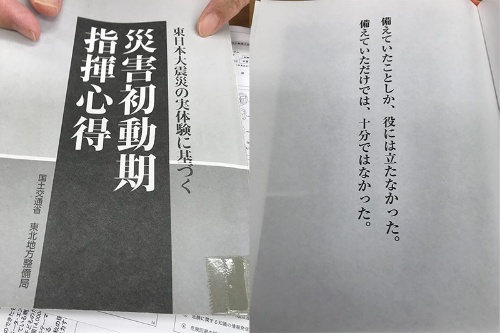 東日本大震災の実体験に基づく
災害初動期
指揮心得
国土交通省 東北地方整備局
備えていたことしか、役には立たなかった。
備えていただけでは、十分ではなかった。